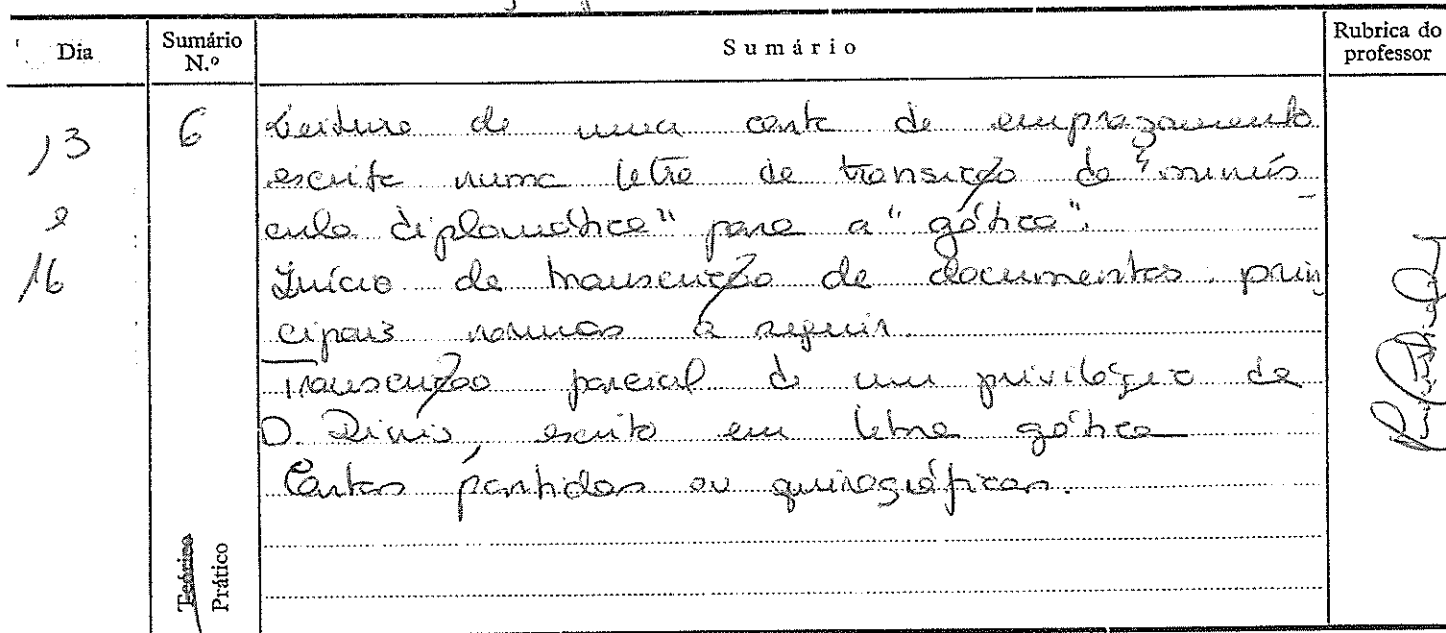 Dia
Sumário N.º
Sumário
Rubrica do professor
13 e 16
6
Leitura de uma carta de emprazamento
escrita numa letra de transição da "minús-
cula diplomática" para a "gótica".
Início de transcrição de documentos: prin
cipais normas a seguir.
Transcrição parcial de um privilégio de
D. Dinis, escrito em letra gótica
Cartas partidas ou quirográficas.
Teórico
Prático